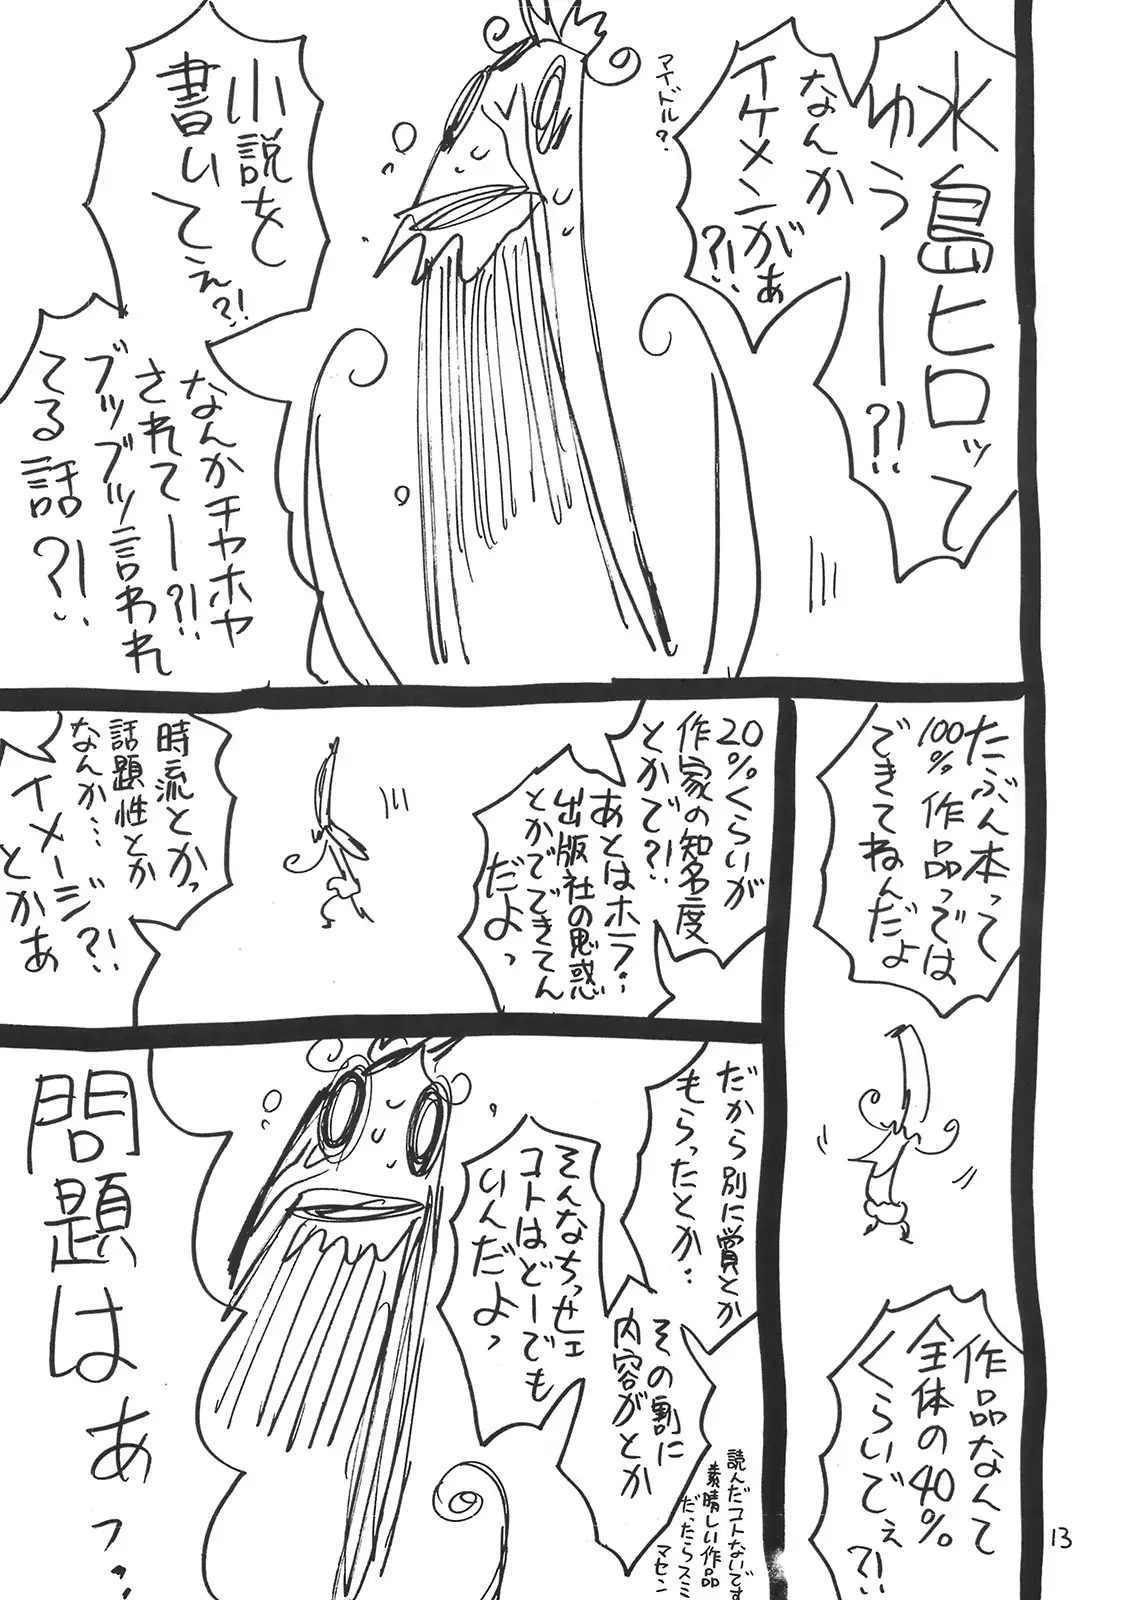 水島ヒロって
ゆうー?!
なんか
イケメンがぁ
?!
アイドル?
小説を
書いてぇ?!
なんかチヤホヤ
されてー?!
ブツブツ言われ
てる話?!
たぶん本って
100%作品っでは
できてねんだよ
作品なんて
全体の40%
くらいでぇ?!
20%くらいが
作家の知名度
とかで?!
あとはホラ・・
出版社の思惑
とかでできてん
だよっ
時流とかっ
話題性とか
なんか・・・
イメージ?!
とかぁ
だから別に賞とか
もらったとか・・
その割に
内容がとか
そんなちっせェ
コトはどーでも
いんだよっ
読んだコトないです
素晴しい作品
だったらスミ
マセン
問題はぁっ・・
13